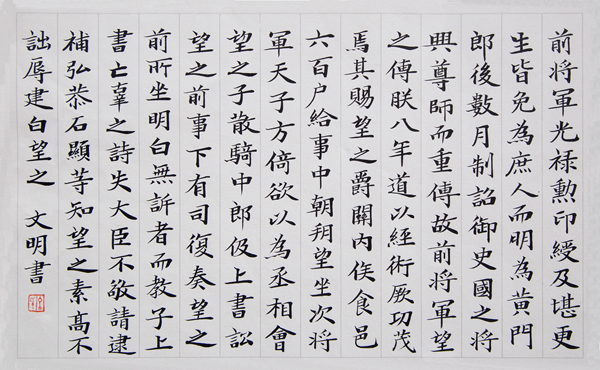 前將軍光禄勲印綬及堪更
生皆免為庶人而明為黃門
郎後數月制詔御史國之將
興尊師而重傳故前將軍望
之傳朕八年道以經術厥功茂
焉其賜望之爵關内侯食邑
六百户給事中朝朔望坐次將
軍天子方倚欲以為丞相會
望之子散騎中郎伋上書訟
望之前事下有司復奏望之
前所坐明白無訴者而教子上
書亡辜之詩失大臣不敬請逮
補弘恭石顯等知望之素高不
詘辱建白望之 文明書